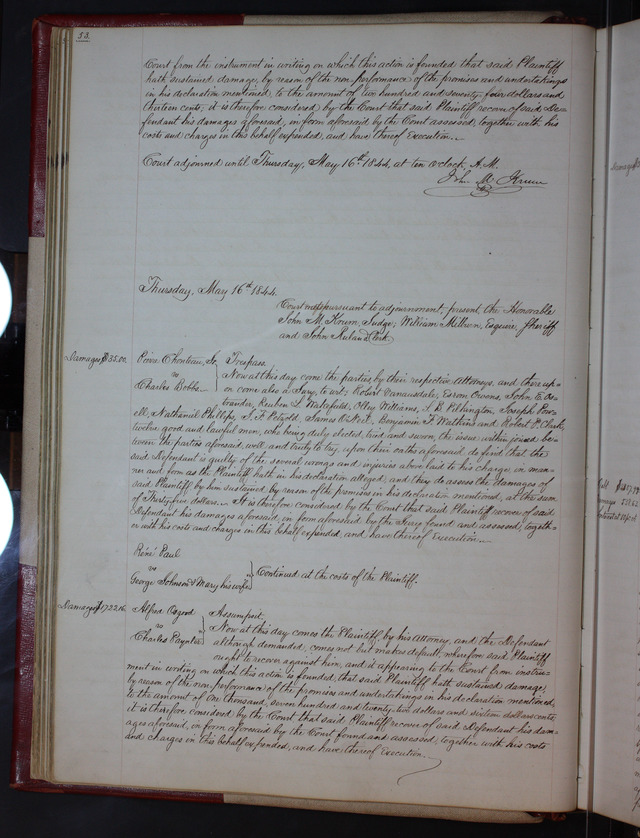 58.
Court from the instrument in writing on which this action is founded that said Plaintiff
hath sustained damage, by reason of the non performance of the promises and undertakings
in his declaration mentioned, to the amount of two hundred and seventy four dollars and
thirteen cents, it is therefore considered by the Court that said Plaintiff recover of said De-
fendant his damages aforesaid, in form aforesaid by the Court assessed, together with his
costs and charges in this behalf expended, and have thereof Execution.
Court adjourned until Thursday, May 16th 1844, at ten o'clock, A.M.
John M. Krum
Thursday, May 16th 1844.
Court met pursuant to adjournment, present, the Honorable
John M. Krum, Judge, William Milburn, Esquire, Sheriff
and John Ruland Clerk
Damages $35.00. Pierre Chouteau, Jr. Trespass.
vs Now at this day come the parties by their respective Attorneys, and thereup-
Charles Bobb. on come also a Jury, to wit; Robert Vanausdale, Esrom Owens, John E. Os-
brander, Reuben L. Wakefield, Olley Williams, A. B. Pilkington, Joseph Pow-
ell, Nathaniel Phillips, J. F. Petzold, James O. Neit, Benjamin F. Watkins and Robert P. Clark,
twelve good and lawful men, who being duly elected, tried and sworn, the issue within joined be-
tween the parties aforesaid, well and truly to try, upon their oaths aforesaid, do find that the
said Defendant is guilty of the several wrongs and injuries above laid to his charge, in man-
ner and form as the Plaintiff hath in his declaration alleged, and they do assess the damages of
said Plaintiff by him sustained by reason of the premises in his declaration mentioned, at the sum
of Thirty five dollars. It is therefore considered by the Court that said Plaintiff recover of said
Defendant his damages aforesaid, in form aforesaid by the Jury found and assessed, togeth-
er with his costs and charges in this behalf expended, and have thereof Execution.
Réné Paul
vs Continued at the costs of the Plaintiff.
George Johnson & Mary his wife
Damages $1722.16. Alfred Osgood Assumpsit.
vs Now at this day comes the Plaintiff by his attorney, and the Defendant
Charles Paynter although demanded, comes not but makes default, wherefore said Plaintiff
ought to recover against him, and it appearing to the Court from instru-
ment in writing on which this action is founded, that said Plaintiff hath sustained damage,
by reason of the non performance of the promises and undertakings in his declaration mentioned,
to the amount of One thousand, seven hundred and twenty two dollars and sixteen dollars cents,
it is therefore considered by the Court that said Plaintiff recover of said Defendant his dam-
ages aforesaid, in form aforesaid by the Court found and assessed, together with his costs
and charges in this behalf expended, and have thereof Execution.